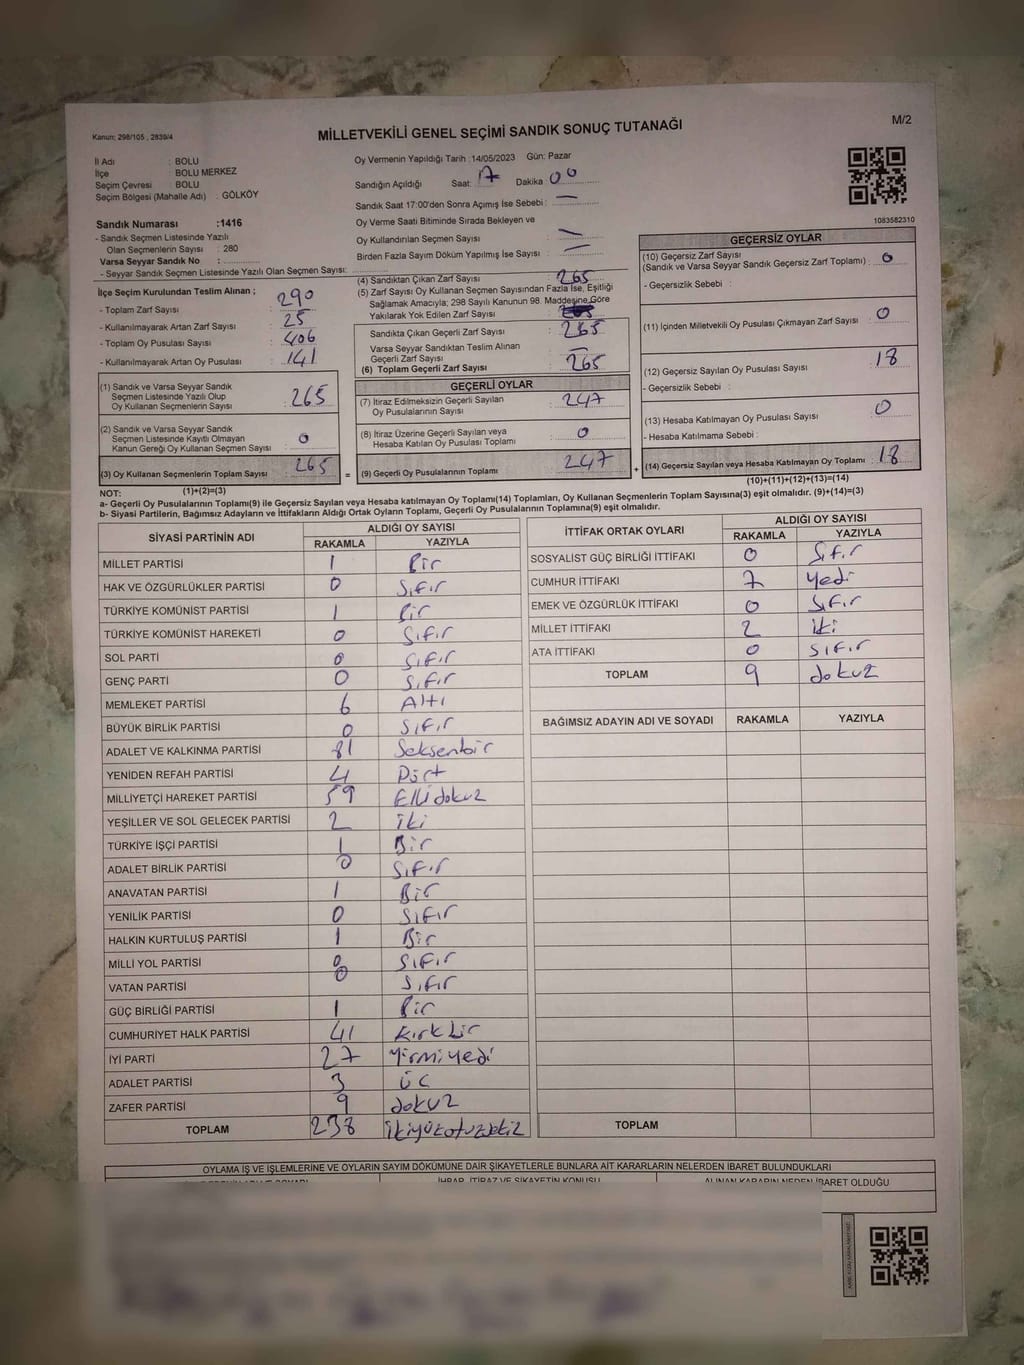 Kanun: 298/105 , 2839/4
MİLLETVEKİLİ GENEL SEÇİMİ SANDIK SONUÇ TUTANAĞI
M/2
İl Adı : BOLU
İlçe : BOLU MERKEZ
Seçim Çevresi : BOLU
Seçim Bölgesi (Mahalle Adı) : GÖLKÖY
Oy Vermenin Yapıldığı Tarih :14/05/2023 Gün: Pazar
Sandığın Açıldığı Saat: 17 Dakika 00
Sandık Saat 17:00'den Sonra Açımış İse Sebebi : —
Oy Verme Saati Bitiminde Sırada Bekleyen ve
Oy Kullandırılan Seçmen Sayısı —
Birden Fazla Sayım Döküm Yapılmış İse Sayısı : —
1083582310
Sandık Numarası :1416
- Sandık Seçmen Listesinde Yazılı
Olan Seçmenlerin Sayısı : 280
Varsa Seyyar Sandık No :
- Seyyar Sandık Seçmen Listesinde Yazılı Olan Seçmen Sayısı:
İlçe Seçim Kurulundan Teslim Alınan ;
- Toplam Zarf Sayısı : 290
- Kullanılmayarak Artan Zarf Sayısı : 25
- Toplam Oy Pusulası Sayısı : 406
- Kullanılmayarak Artan Oy Pusulası : 141
(1) Sandık ve Varsa Seyyar Sandık
Seçmen Listesinde Yazılı Olup
Oy Kullanan Seçmenlerin Sayısı : 265
(2) Sandık ve Varsa Seyyar Sandık
Seçmen Listesinde Kayıtlı Olmayan
Kanun Gereği Oy Kullanan Seçmen Sayısı : 0
(3) Oy Kullanan Seçmenlerin Toplam Sayısı : 265
(1)+(2)=(3)
(4) Sandıktan Çıkan Zarf Sayısı : 265
(5) Zarf Sayısı Oy Kullanan Seçmen Sayısından Fazla İse, Eşitliği
Sağlamak Amacıyla; 298 Sayılı Kanunun 98. Maddesine Göre
Yakılarak Yok Edilen Zarf Sayısı :
Sandıkta Çıkan Geçerli Zarf Sayısı : 265
Varsa Seyyar Sandıktan Teslim Alınan
Geçerli Zarf Sayısı : —
(6) Toplam Geçerli Zarf Sayısı : 265
GEÇERLİ OYLAR
(7) İtiraz Edilmeksizin Geçerli Sayılan
Oy Pusulalarının Sayısı : 247
(8) İtiraz Üzerine Geçerli Sayılan veya
Hesaba Katılan Oy Pusulası Toplamı : 0
= (9) Geçerli Oy Pusulalarının Toplamı : 247
GEÇERSİZ OYLAR
(10) Geçersiz Zarf Sayısı
(Sandık ve Varsa Seyyar Sandık Geçersiz Zarf Toplamı) : 0
- Geçersizlik Sebebi :
(11) İçinden Milletvekili Oy Pusulası Çıkmayan Zarf Sayısı : 0
(12) Geçersiz Sayılan Oy Pusulası Sayısı : 18
- Geçersizlik Sebebi :
(13) Hesaba Katılmayan Oy Pusulası Sayısı : 0
- Hesaba Katılmama Sebebi :
+ (14) Geçersiz Sayılan veya Hesaba Katılmayan Oy Toplamı : 18
(10)+(11)+(12)+(13)=(14)
NOT:
a- Geçerli Oy Pusulalarının Toplamı(9) ile Geçersiz Sayılan veya Hesaba katılmayan Oy Toplamı(14) Toplamları, Oy Kullanan Seçmenlerin Toplam Sayısına(3) eşit olmalıdır. (9)+(14)=(3)
b- Siyasi Partilerin, Bağımsız Adayların ve İttifakların Aldığı Ortak Oyların Toplamı, Geçerli Oy Pusulalarının Toplamına(9) eşit olmalıdır.
SİYASİ PARTİNİN ADI ALDIĞI OY SAYISI
RAKAMLA YAZIYLA
MİLLET PARTİSİ 1 Bir
HAK VE ÖZGÜRLÜKLER PARTİSİ 0 Sıfır
TÜRKİYE KOMÜNİST PARTİSİ 1 Bir
TÜRKİYE KOMÜNİST HAREKETİ 0 Sıfır
SOL PARTİ 0 Sıfır
GENÇ PARTİ 0 Sıfır
MEMLEKET PARTİSİ 6 Altı
BÜYÜK BİRLİK PARTİSİ 0 Sıfır
ADALET VE KALKINMA PARTİSİ 81 Seksenbir
YENİDEN REFAH PARTİSİ 4 Dört
MİLLİYETÇİ HAREKET PARTİSİ 59 Ellidokuz
YEŞİLLER VE SOL GELECEK PARTİSİ 2 iki
TÜRKİYE İŞÇİ PARTİSİ 1 Bir
ADALET BİRLİK PARTİSİ 0 Sıfır
ANAVATAN PARTİSİ 1 Bir
YENİLİK PARTİSİ 0 Sıfır
HALKIN KURTULUŞ PARTİSİ 1 Bir
MİLLİ YOL PARTİSİ 0 Sıfır
VATAN PARTİSİ 0 Sıfır
GÜÇ BİRLİĞİ PARTİSİ 1 Bir
CUMHURİYET HALK PARTİSİ 41 Kırkbir
İYİ PARTİ 27 Yirmiyedi
ADALET PARTİSİ 3 üç
ZAFER PARTİSİ 9 dokuz
TOPLAM 238 ikiyüzotuzsekiz
İTTİFAK ORTAK OYLARI ALDIĞI OY SAYISI
RAKAMLA YAZIYLA
SOSYALİST GÜÇ BİRLİĞİ İTTİFAKI 0 Sıfır
CUMHUR İTTİFAKI 7 yedi
EMEK VE ÖZGÜRLÜK İTTİFAKI 0 Sıfır
MİLLET İTTİFAKI 2 iki
ATA İTTİFAKI 0 Sıfır
TOPLAM 9 dokuz
BAĞIMSIZ ADAYIN ADI VE SOYADI RAKAMLA YAZIYLA
TOPLAM
OYLAMA İŞ VE İŞLEMLERİNE VE OYLARIN SAYIM DÖKÜMÜNE DAİR ŞİKAYETLERLE BUNLARA AİT KARARLARIN NELERDEN İBARET BULUNDUKLARI
İHBAR, İTİRAZ VE ŞİKAYETİN KONUSU ALINAN KARARIN NEDEN İBARET OLDUĞU